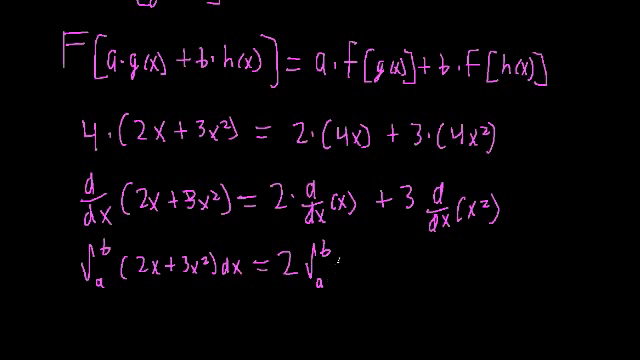 F[a·g(x) + b·h(x)] = a·F[g(x)] + b·F[h(x)]
4·(2x + 3x²) = 2·(4x) + 3·(4x²)
d/dx (2x + 3x²) = 2·d/dx (x) + 3 d/dx (x²)
∫_a^b (2x + 3x²) dx = 2 ∫_a^b